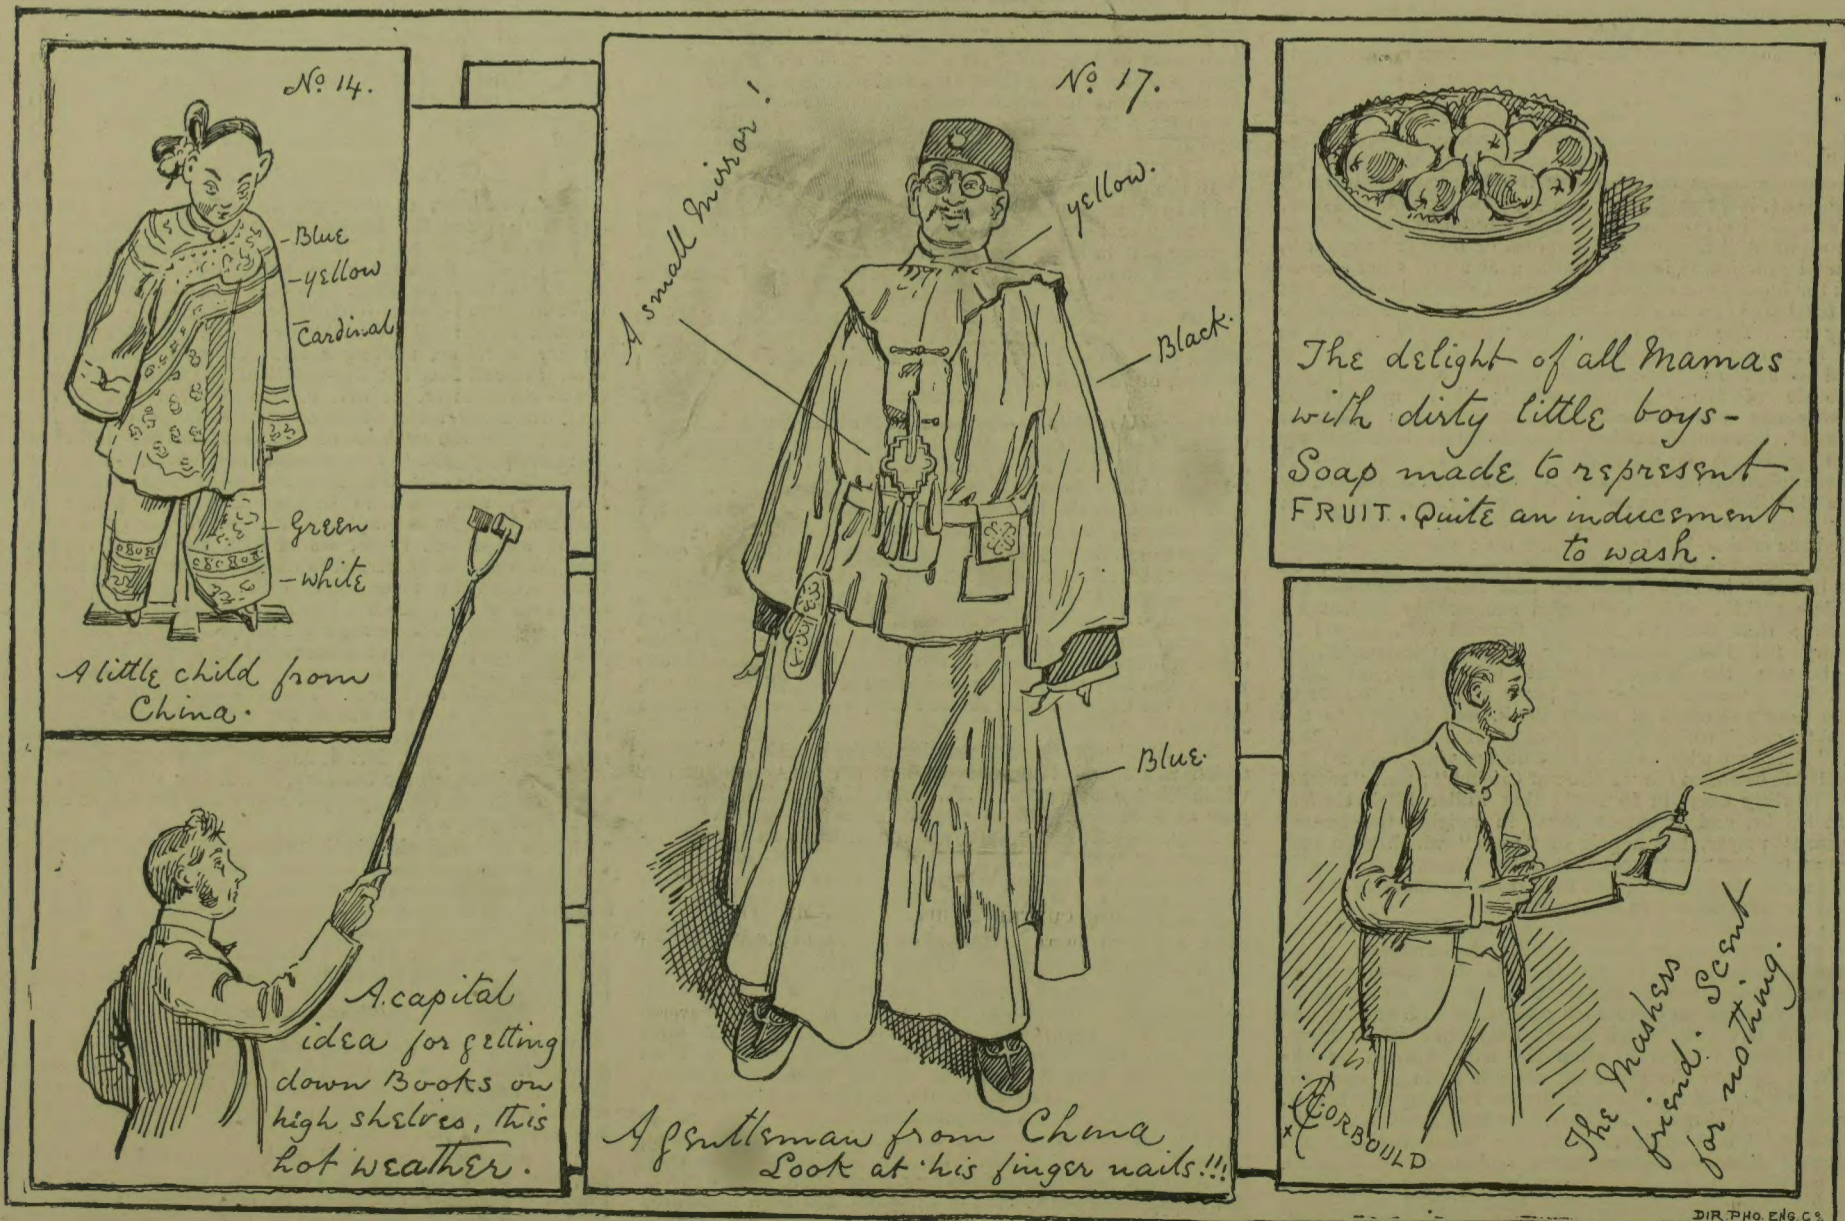 No 14.
Blue
yellow
Cardinal
Green
white
A little child from
China.
A capital
idea for getting
down Books on
high shelves, this
hot weather.
No 17.
A small Mirror!
yellow.
Black.
Blue.
A gentleman from China
Look at his finger nails!!!
The delight of all Mamas
with dirty little boys-
Soap made to represent
FRUIT. Quite an inducement
to wash.
The Mashers
friend. Scent
for nothing.
CORBOULD
DIR. PHO. ENG. Co.